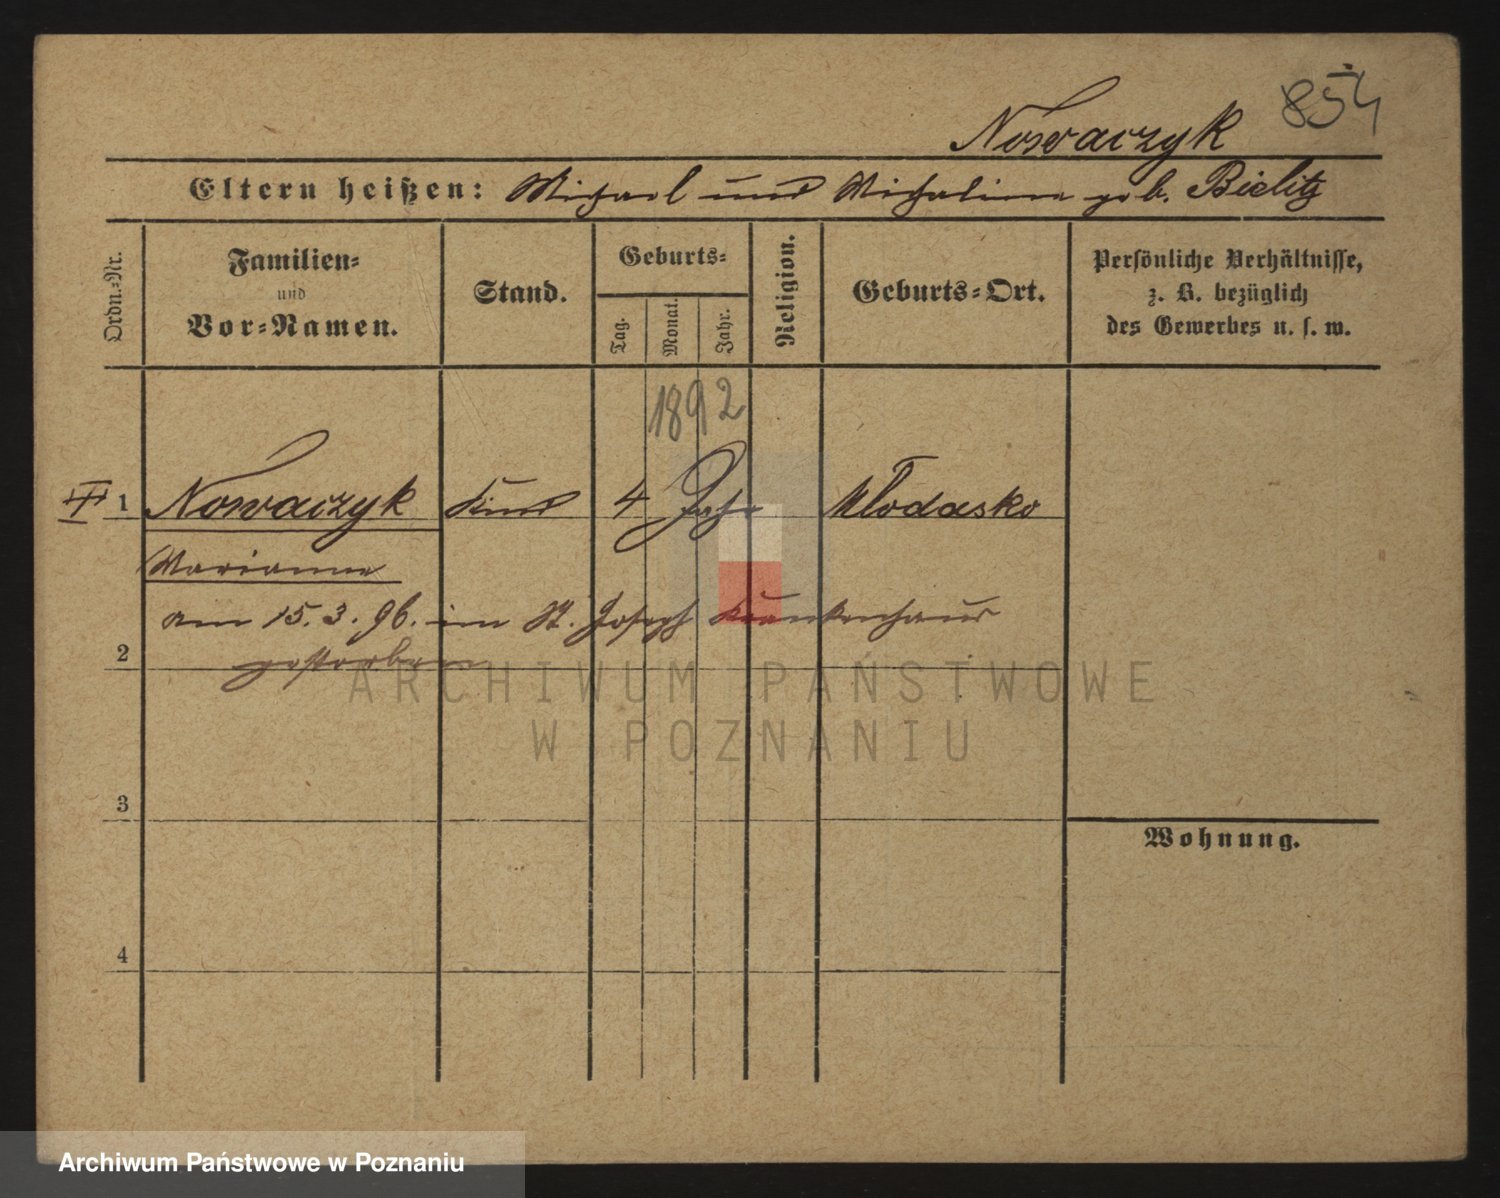 Nowaczyk 854
Eltern heißen: Michael und Michalina geb. Bielitz
Ordn.-Nr.
Familien-
und
Vor-Namen.
Stand.
Geburts-
Tag.
Monat.
Jahr.
Religion.
Geburts-Ort.
Persönliche Verhältnisse,
z. B. bezüglich
des Gewerbes u. s. w.
1892
1 Nowaczyk Kind 4 Jahr Młodasko
Marianna
am 15.3.96. im St. Joseph Krankenhaus
2 gestorben
ARCHIWUM PAŃSTWOWE
W POZNANIU
3
Wohnung.
4
Archiwum Państwowe w Poznaniu